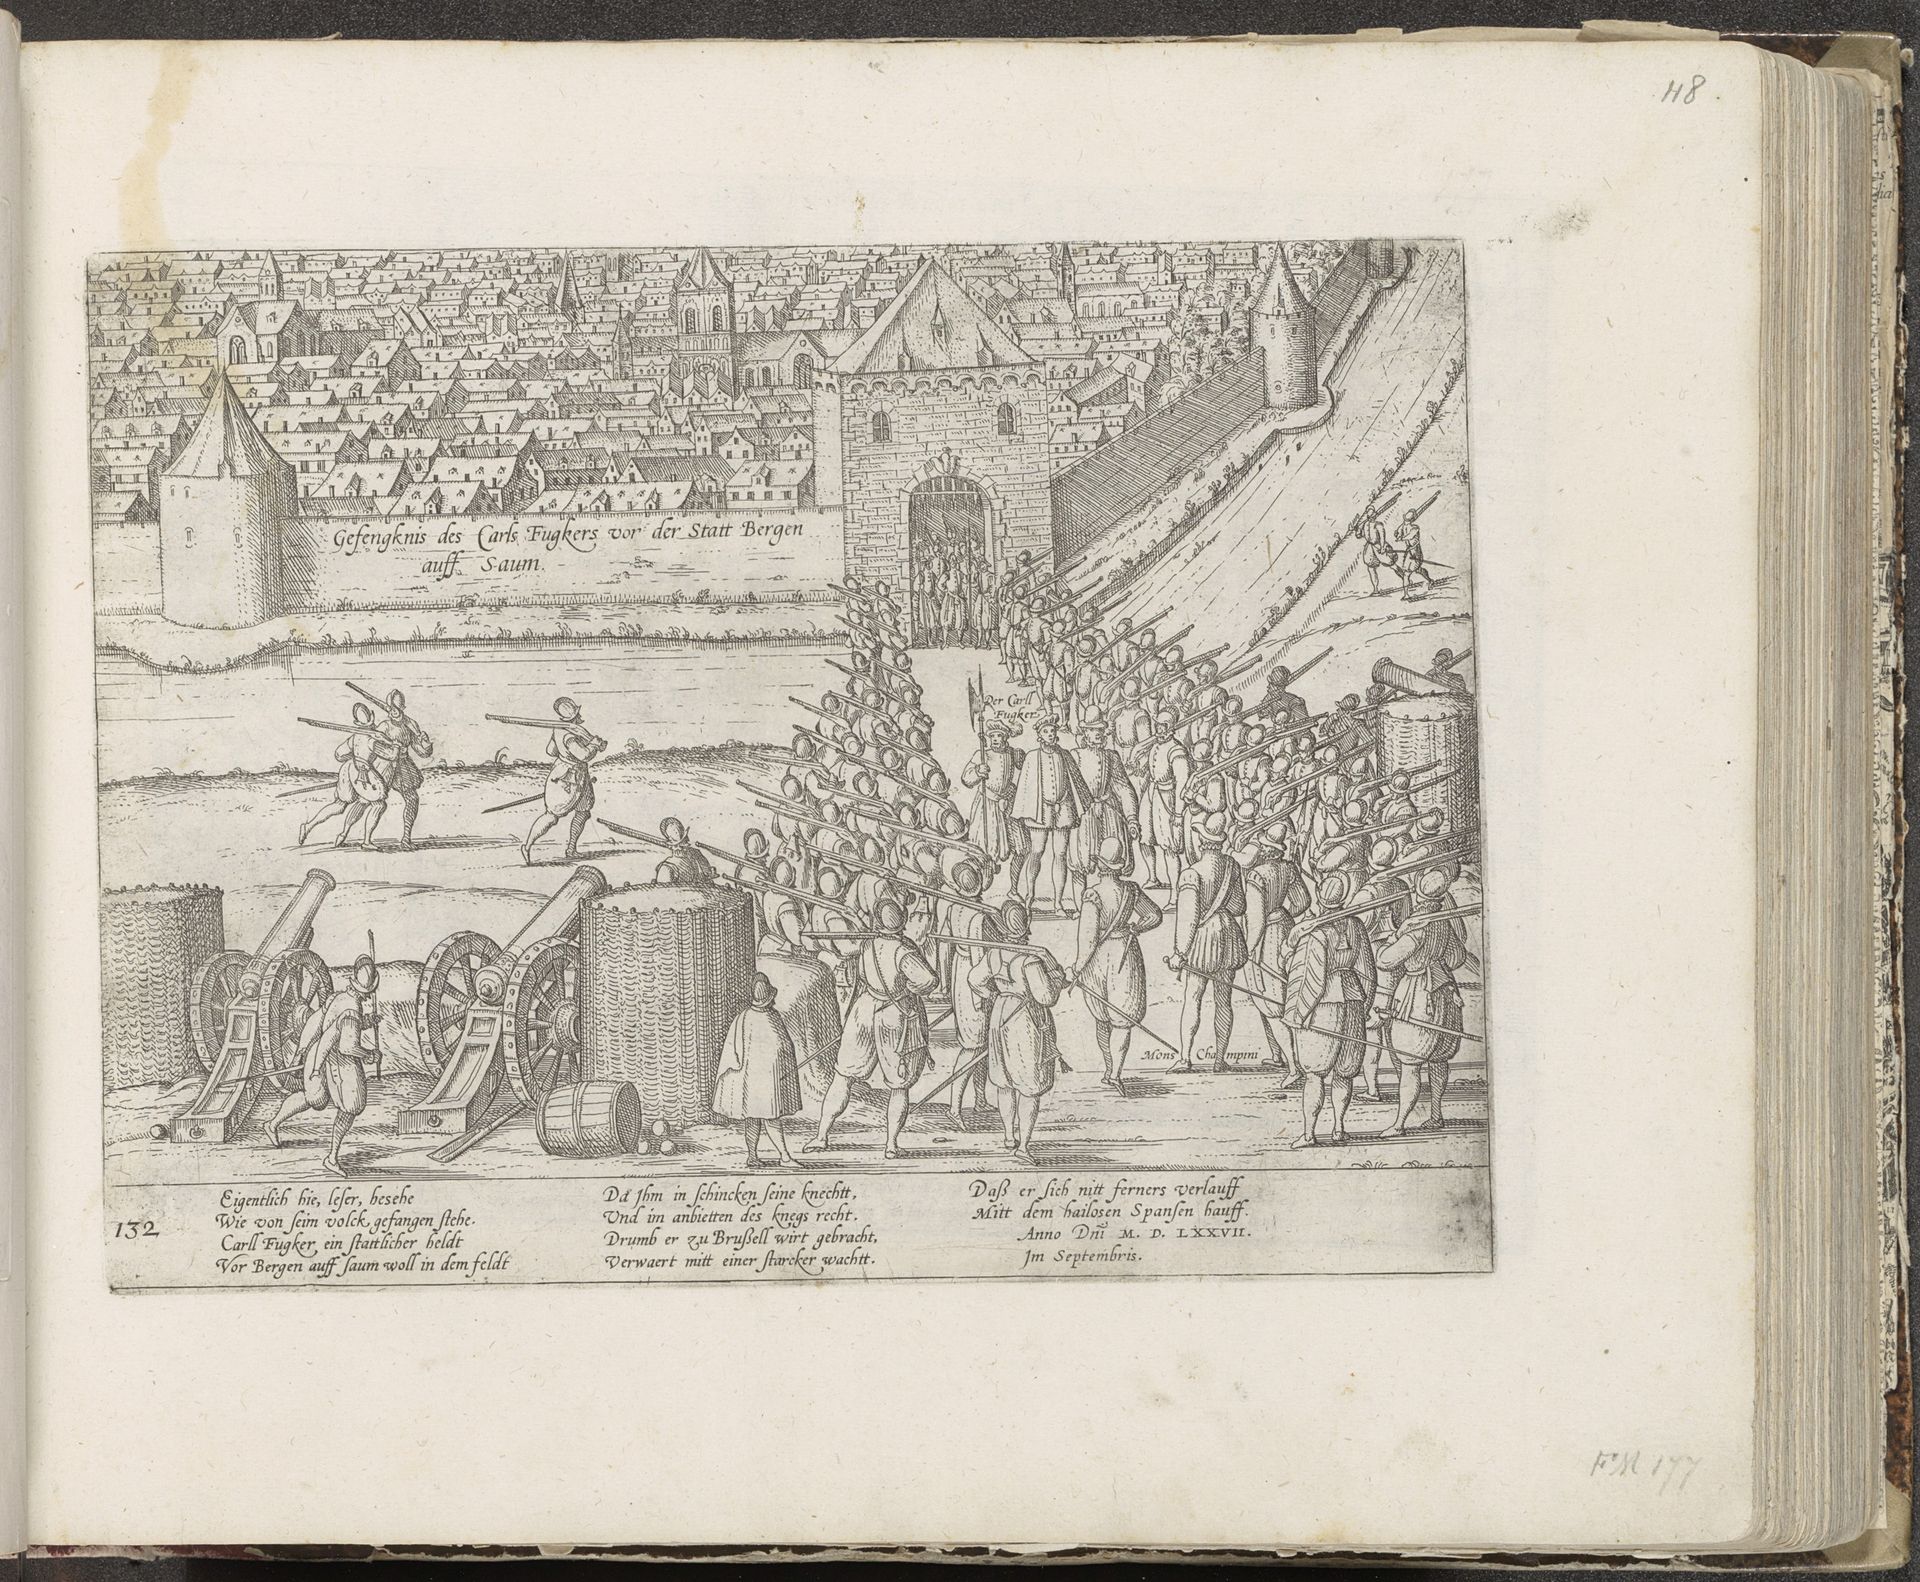 118
Gefengknis des Carls Fugkers vor der Statt Bergen
auff Saum.
Der Carll
Fugker
Mons Champini
132
Eigentlich hie, leser, besehe
Wie von seim volck, gefangen stehe.
Carll Fugker, ein stattlicher heldt
Vor Bergen auff saum woll in dem feldt
Da Jhm in schincken seine knechtt,
Und im anbietten des knegs recht.
Drumb er zu Brußell wirt gebracht,
Verwaert mitt einer starcker wachtt.
Daß er sich nitt ferners verlauff
Mitt dem hailosen Spansen hauff.
Anno Dnī M. D. LXXVII.
Jm Septembris.
FM 177